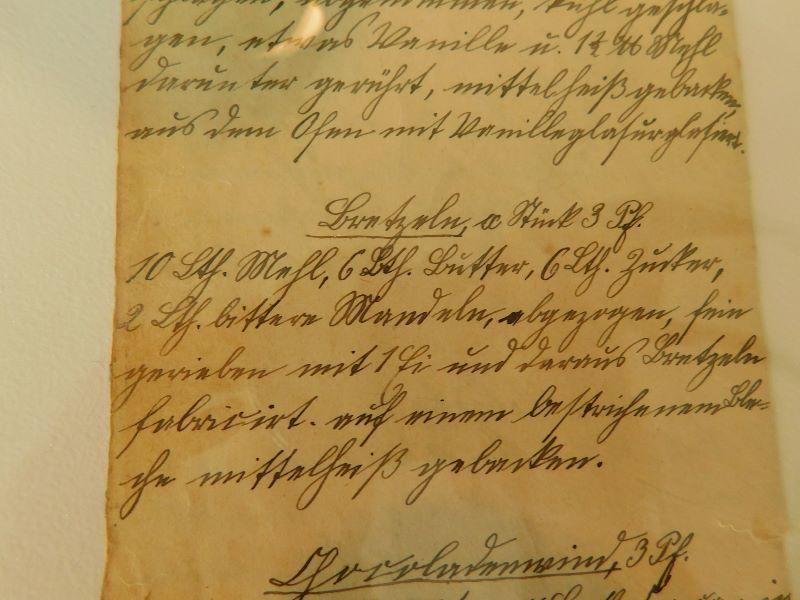 schlagen, abgenommen, kühl geschla-
gen, etwas Vanille u. 1½ ℔ Mehl
darunter gerührt, mittelheiß gebacken,
aus dem Ofen mit Vanilleglasur glasirt.
Bretzeln, a Stück 3 Pf.
10 Lth. Mehl, 6 Lth. Butter, 6 Lth. Zucker,
2 Lth. bittere Mandeln, abgezogen, fein
gerieben mit 1 Ei und daraus Bretzeln
fabricirt. auf einem bestrichenem Ble-
che mittelheiß gebacken.
Chocoladenwind, 3 Pf.